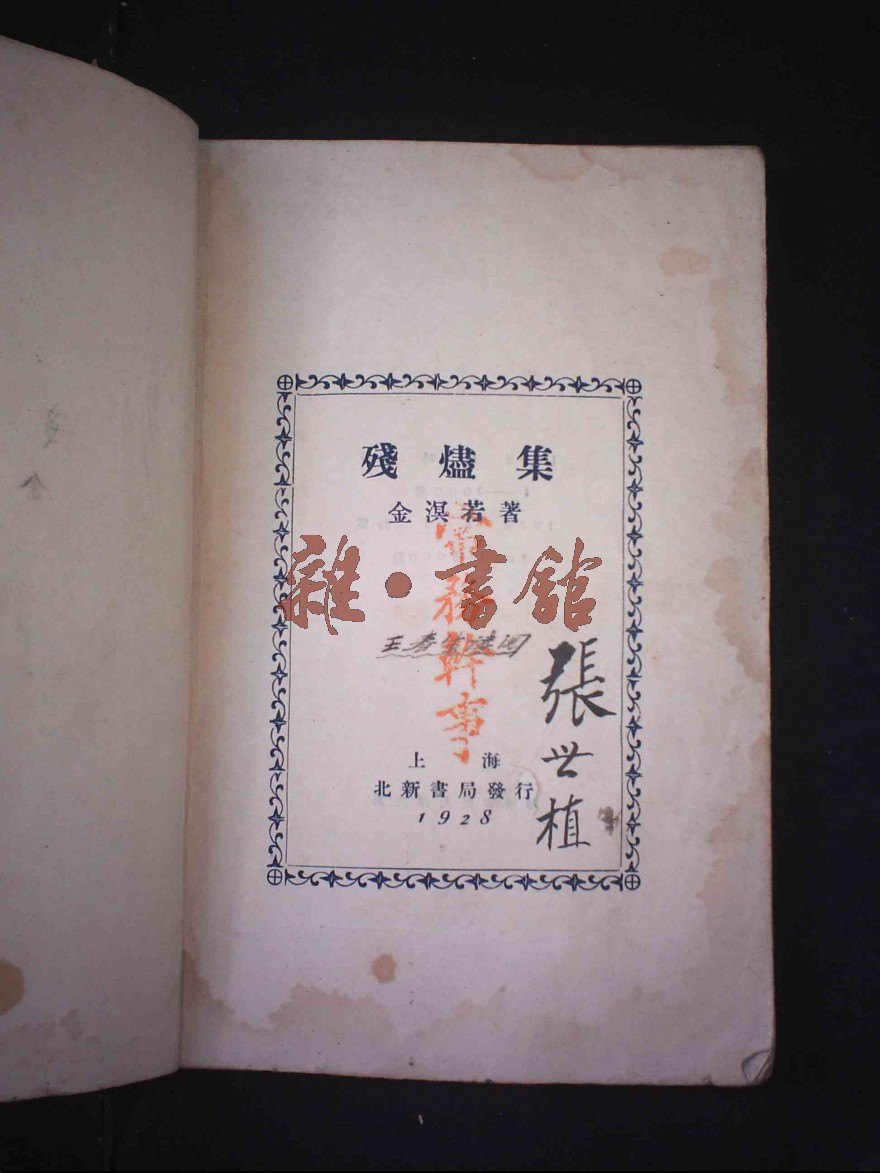 殘燼集
金溟若著
雜·書館
常務幹事
張世植
上海
北新書局發行
1928